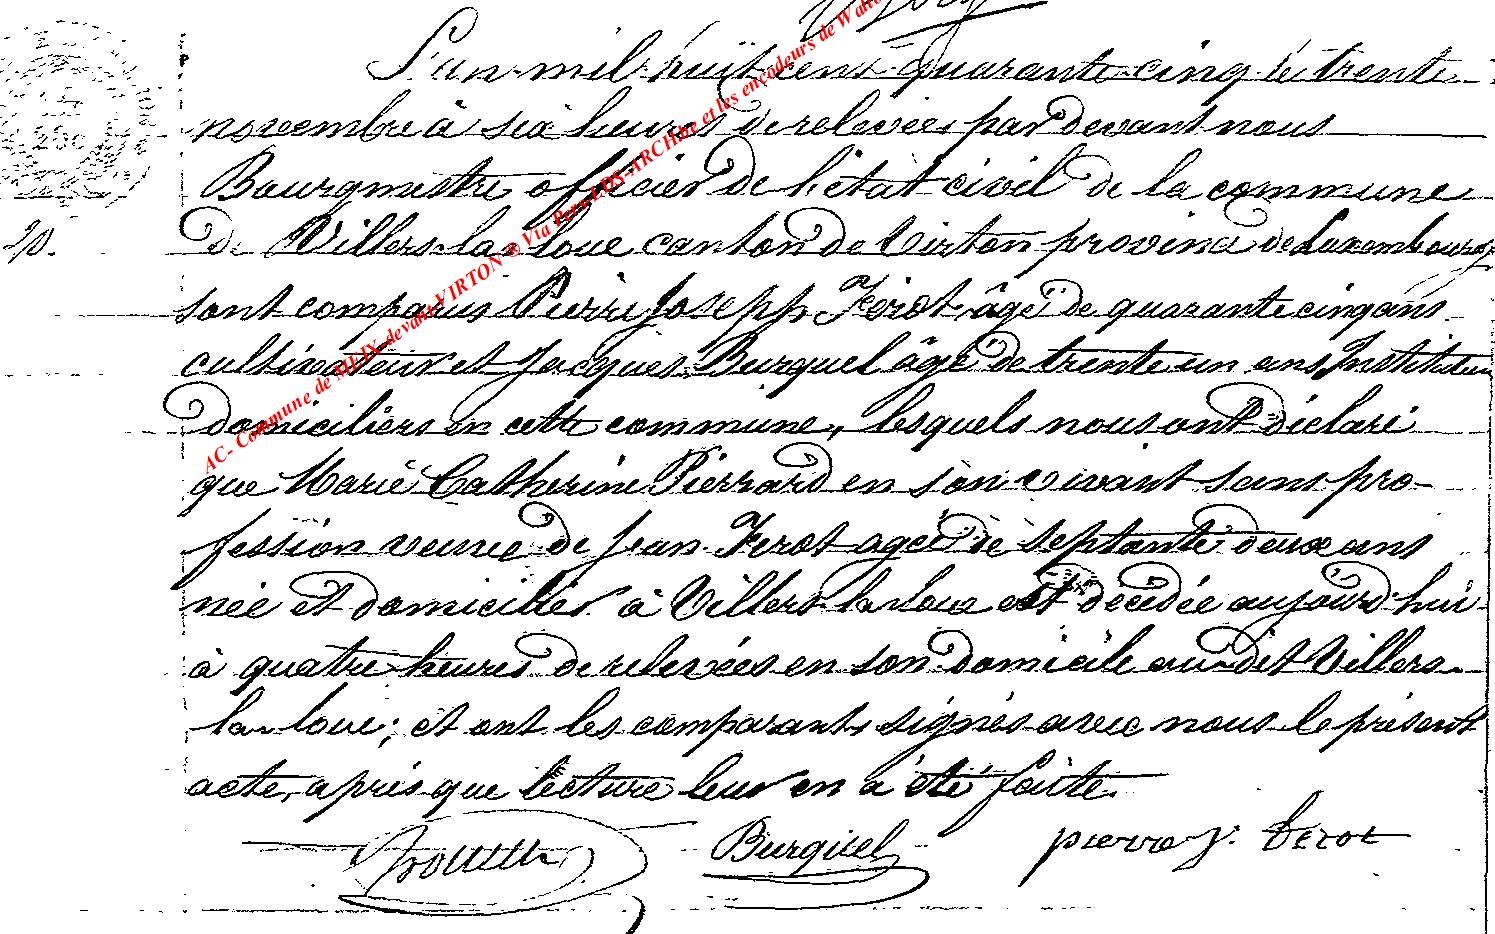 L'an mil huit cent quarante cinq le trente
novembre à six heures de relevées, par devant nous
Bourgmestre officier de l'état civil de la commune
20. de Villers-la-loue canton de Virton province de Luxembourg
sont comparus Pierre Joseph Ferot âgé de quarante cinq ans
cultivateur et Jacques Burquel âgé de trente un ans Instituteur
domiciliés en cette commune, lesquels nous ont déclaré
que Marie Catherine Pierrard en son vivant sans pro-
fession veuve de Jean Ferot agée de septante deux ans
née et domiciliée à Villers-la-loue est décédée aujourd'hui
à quatre heures de relevées en son domicile au-dit Villers-
la-loue; et ont les comparants signés avec nous le présent
acte, après que lecture leur en a été faite.
Burquel pierre J. ferot
AC- Commune de MEIX-devant-VIRTON ® Via Pers-LDS-ARCHbe et les encodeurs de